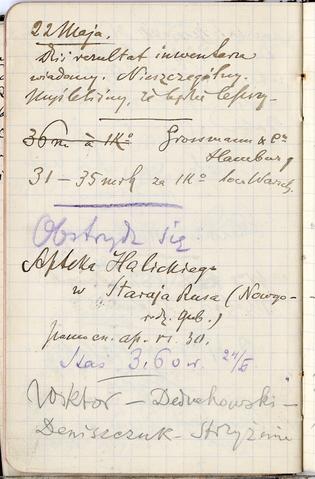 22 Maja.
Dziś rezultat inwentarza
wiadomy. Nieszczególny.
Myśleliśmy, że będzie lepszy.
36 m. à 1Ko Grossmann & Co
Hamburg
31 – 35 mrk za 1Ko loco Warsch.
Obstrydz się
Apteka Halickiego
w Staraja Rusa (Nowgo-
rodz. gub.)
pomocn. ap. rs. 30.
Staś 3,60 w.
Wiktor – Deduchowski –
Deniszczuk – Stryżenie